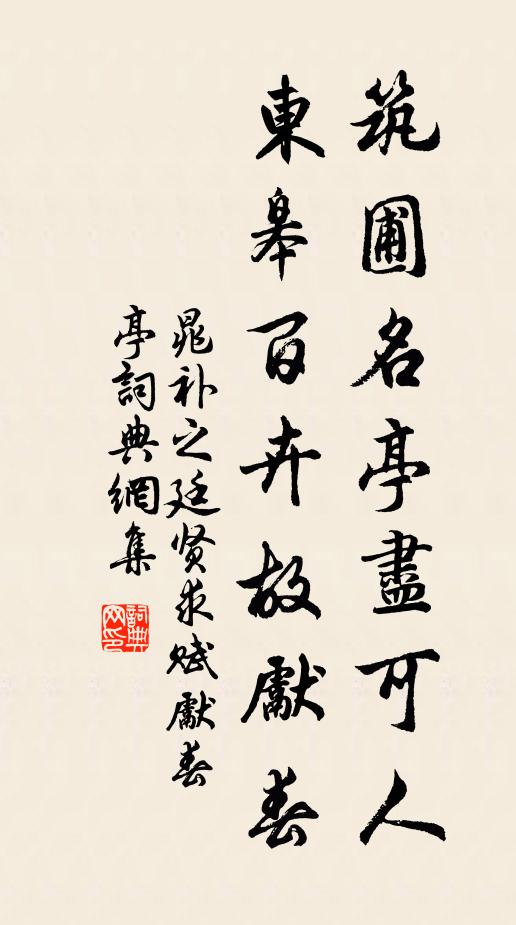 筑圃名亭盡可人
東皋百卉故獻春
晁补之廷贤求赋獻春
亭詞典網集
詞典网印